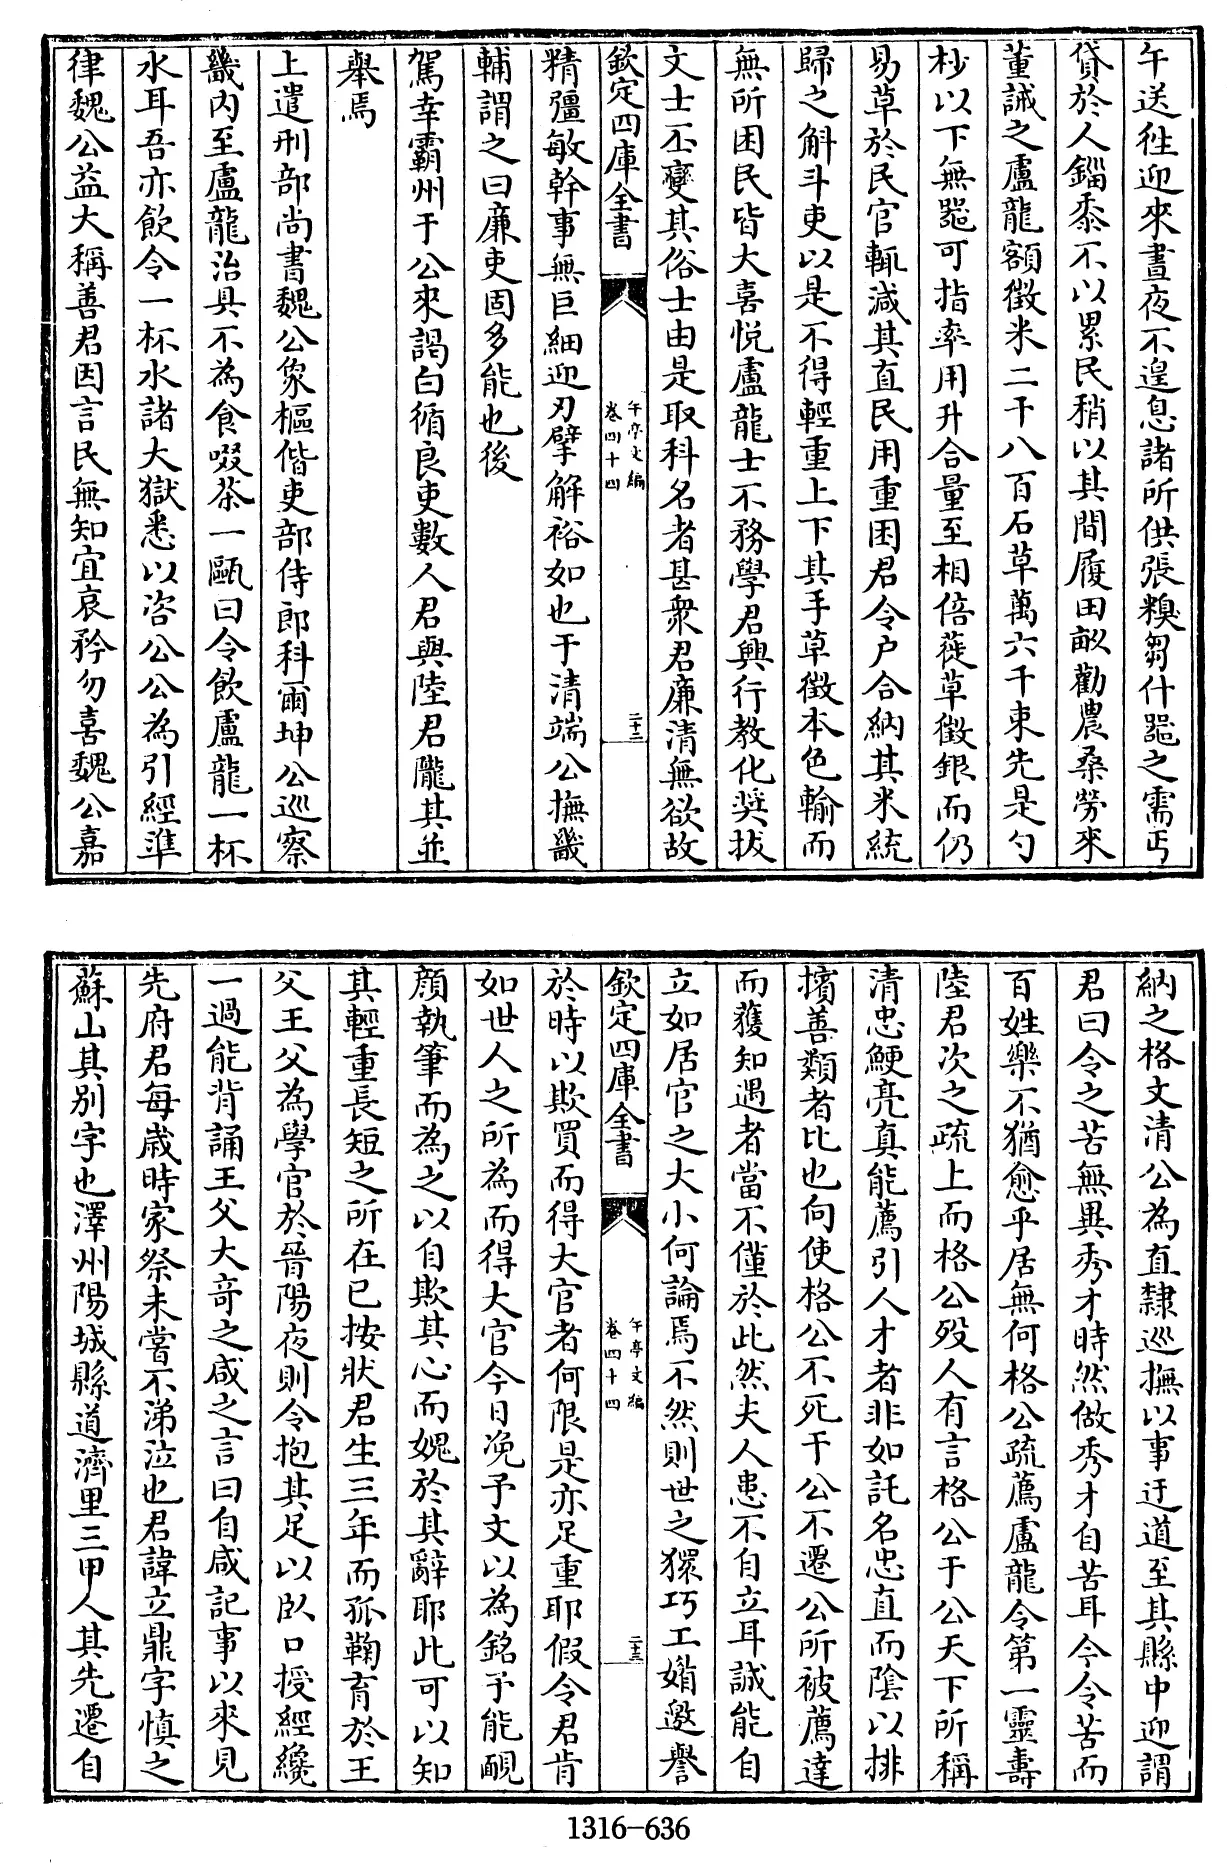 午送徃迎來晝夜不遑息諸所供張糗芻什噐之需丐
貸於人錙黍不以累民稍以其間履田畝勸農桑勞來
董誡之盧龍額徴米二千八百石草萬六千束先是勺
杪以下無噐可指率用升合量至相倍蓰草徴銀而仍
易草於民官輒減其直民用重困君令户合納其米統
歸之斛斗吏以是不得輕重上下其手草徴本色輸而
無所困民皆大喜悦盧龍士不務學君興行教化奬拔
文士丕變其俗士由是取科名者甚衆君廉清無欲故
欽定四庫全書
午亭文編
卷四十四
二十二
精彊敏幹事無巨細迎刃擘解裕如也于清端公撫畿
輔謂之曰廉吏固多能也後
駕幸霸州于公來謁白循良吏數人君與陸君隴其並
舉焉
上遣刑部尚書魏公象樞偕吏部侍郎科爾坤公巡察
畿内至盧龍治具不為食啜茶一甌曰令飲盧龍一杯
水耳吾亦飲令一杯水諸大獄悉以咨公公為引經準
律魏公益大稱善君因言民無知宜哀矜勿喜魏公嘉
納之格文清公為直隸巡撫以事迂道至其縣中迎謂
君曰令之苦無異秀才時然做秀才自苦耳今令苦而
百姓樂不猶愈乎居無何格公疏薦盧龍令第一靈壽
陸君次之疏上而格公殁人有言格公于公天下所稱
清忠鯁亮真能薦引人才者非如託名忠直而陰以排
擯善類者比也向使格公不死于公不遷公所被薦達
而蒦知遇者當不僅於此然夫人患不自立耳誠能自
立如居官之大小何論焉不然則世之獧巧工媚邀譽
欽定四庫全書
午亭文編
卷四十四
二十三
於時以欺買而得大官者何限是亦足重耶假令君肯
如世人之所為而得大官今日凂予文以為銘予能靦
顔執筆而為之以自欺其心而媿於其辭耶此可以知
其輕重長短之所在已按狀君生三年而孤鞠育於王
父王父為學官於晉陽夜則令抱其足以卧口授經纔
一過能背誦王父大竒之咸之言曰自咸記事以來見
先府君每歳時家祭未嘗不涕泣也君諱立鼎字慎之
蘇山其别字也澤州陽城縣道濟里三甲人其先遷自
1316-636